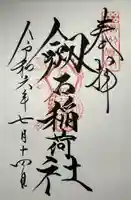 奉拝
劔石稲荷社
令和六年七月十四日